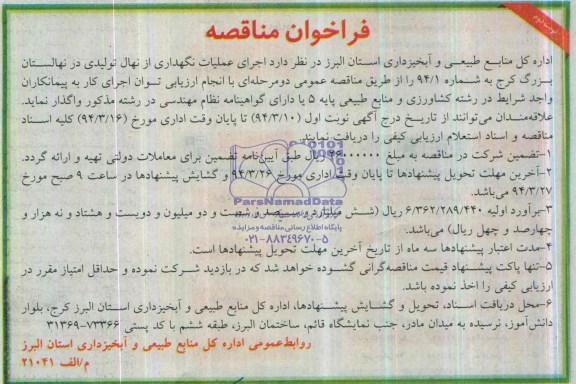 نوبت دوم
فراخوان مناقصه
اداره کل منابع طبیعی و آبخیزداری استان البرز در نظر دارد اجرای عملیات نگهداری از نهال تولیدی در نهالستان
بزرگ کرج به شماره ۹۴/۱ را از طریق مناقصه عمومی دومرحله‌ای با انجام ارزیابی توان اجرای کار به پیمانکاران
واجد شرایط در رشته کشاورزی و منابع طبیعی پایه ۵ یا دارای گواهینامه نظام مهندسی در رشته مذکور واگذار نماید.
علاقه‌مندان می‌توانند از تاریخ درج آگهی نوبت اول (۹۴/۳/۱۰) تا پایان وقت اداری مورخ (۹۴/۳/۱۶) کلیه اسناد
مناقصه و اسناد استعلام ارزیابی کیفی را دریافت نمایند.
۱-تضمین شرکت در مناقصه به مبلغ ریال طبق آیین‌نامه تضمین برای معاملات دولتی تهیه و ارائه گردد.
۲-آخرین مهلت تحویل پیشنهادها تا پایان وقت اداری مورخ ۹۴/۳/۲۶ و گشایش پیشنهادها در ساعت ۹ صبح مورخ
۹۴/۳/۲۷ می‌باشد.
۳-برآورد اولیه ۶/۳۶۲/۲۸۹/۴۴۰ ریال (شش میلیارد و سیصد و شصت و دو میلیون و دویست و هشتاد و نه هزار و
چهارصد و چهل ریال) می‌باشد.
۴-مدت اعتبار پیشنهادها سه ماه از تاریخ آخرین مهلت تحویل پیشنهادها است.
۵-تنها پاکت پیشنهاد قیمت مناقصه‌گرانی گشوده خواهد شد که در بازدید شرکت نموده و حداقل امتیاز مقرر در
ارزیابی کیفی را اخذ نموده باشد.
۶-محل دریافت اسناد، تحویل و گشایش پیشنهادها، اداره کل منابع طبیعی و آبخیزداری استان البرز کرج، بلوار
دانش‌آموز، نرسیده به میدان مادر، جنب نمایشگاه قائم، ساختمان البرز، طبقه ششم با کد پستی ۷۳۳۶۶-۳۱۳۶۹
روابط‌عمومی اداره کل منابع طبیعی و آبخیزداری استان البرز
م/الف ۲۱۰۴۱
ParsNamadData
پایگاه اطلاع رسانی مناقصه و مزایده
۰۲۱-۸۸۳۴۹۶۷۰-۵